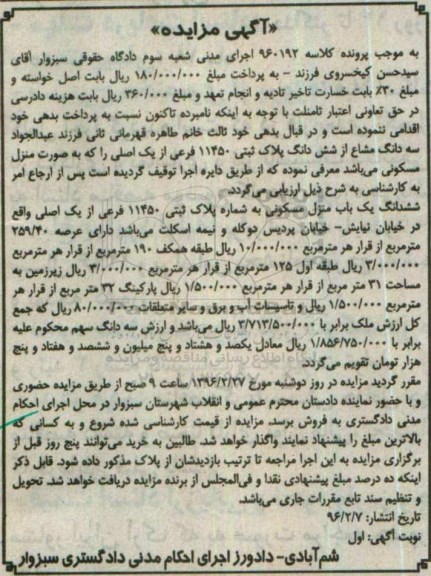 «آگهی مزایده»
به موجب پرونده کلاسه ۹۶۰۱۹۲ اجرای مدنی شعبه سوم دادگاه حقوقی سبزوار آقای
سیدحسن کیخسروی فرزند - به پرداخت مبلغ ۱۸۰/۰۰۰/۰۰۰ ریال بابت اصل خواسته و
مبلغ ۳۰٪ بابت خسارت تاخیر تادیه و انجام تعهد و مبلغ ۳۶۰/۰۰۰ ریال بابت هزینه دادرسی
در حق تعاونی اعتبار ثامنلت با توجه به اینکه نامبرده تاکنون نسبت به پرداخت بدهی خود
اقدامی ننموده است و در قبال بدهی خود ثالث خانم طاهره قهرمانی ثانی فرزند عبدالجواد
سه دانگ مشاع از شش دانگ پلاک ثبتی ۱۱۴۵۰ فرعی از یک اصلی را که به صورت منزل
مسکونی می‌باشد معرفی نموده که از طریق دایره اجرا توقیف گردیده است پس از ارجاع امر
به کارشناسی به شرح ذیل ارزیابی می‌گردد.
ششدانگ یک باب منزل مسکونی به شماره پلاک ثبتی ۱۱۴۵۰ فرعی از یک اصلی واقع
در خیابان نیایش- خیابان پردیس دوگله و نیمه اسکلت می‌باشد دارای عرصه ۲۵۹/۴۰
مترمربع از قرار هر مترمربع ۱۰/۰۰۰/۰۰۰ ریال طبقه همکف ۱۹۰ مترمربع از قرار هر مترمربع
۳/۰۰۰/۰۰۰ ریال طبقه اول ۱۲۵ مترمربع از قرار هر مترمربع ۳/۰۰۰/۰۰۰ ریال زیرزمین به
مساحت ۳۱ متر مربع از قرار هر مترمربع ۱/۵۰۰/۰۰۰ ریال پارکینگ ۳۲ متر مربع از قرار هر
مترمربع ۱/۵۰۰/۰۰۰ ریال و تاسیسات آب و برق و سایر متعلقات ۸۰/۰۰۰/۰۰۰ ریال که جمع
کل ارزش ملک برابر با ۳/۷۱۳/۵۰۰/۰۰۰ ریال می‌باشد و ارزش سه دانگ سهم محکوم علیه
برابر با ۱/۸۵۶/۷۵۰/۰۰۰ ریال معادل یکصد و هشتاد و پنج میلیون و ششصد و هفتاد و پنج
هزار تومان تقویم می‌گردد.
مقرر گردید مزایده در روز دوشنبه مورخ ۱۳۹۶/۲/۲۷ ساعت ۹ صبح از طریق مزایده حضوری
و با حضور نماینده دادستان محترم عمومی و انقلاب شهرستان سبزوار در محل اجرای احکام
مدنی دادگستری به فروش برسد. مزایده از قیمت کارشناسی شده شروع و به کسانی که
بالاترین مبلغ را پیشنهاد نمایند واگذار خواهد شد. طالبین به خرید می‌توانند پنج روز قبل از
برگزاری مزایده به این اجرا مراجعه تا ترتیب بازدیدشان از پلاک مذکور داده شود. قابل ذکر
اینکه ده درصد مبلغ پیشنهادی نقدا و فی‌المجلس از برنده مزایده دریافت خواهد شد. تحویل
و تنظیم سند تابع مقررات جاری می‌باشد.
تاریخ انتشار: ۹۶/۲/۷
نوبت آگهی: اول
شم‌آبادی- دادورز اجرای احکام مدنی دادگستری سبزوار